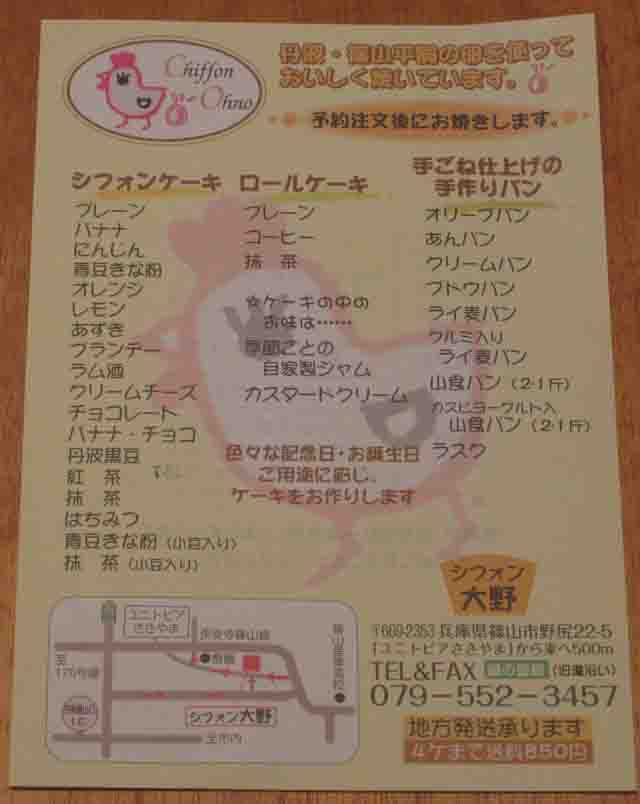 Chiffon
Ohno
丹波・篠山平飼の卵を使って
おいしく焼いています。
予約注文後にお焼きします。
シフォンケーキ
プレーン
バナナ
にんじん
青豆きな粉
オレンジ
レモン
あずき
ブランデー
ラム酒
クリームチーズ
チョコレート
バナナ・チョコ
丹波黒豆
紅 茶
抹 茶
はちみつ
青豆きな粉(小豆入り)
抹 茶(小豆入り)
ロールケーキ
プレーン
コーヒー
抹 茶
☆ケーキの中の
お味は……
季節ごとの
自家製ジャム
カスタードクリーム
色々な記念日・お誕生日
ご用途に応じ、
ケーキをお作りします
手ごね仕上げの
手作りパン
オリーブパン
あんパン
クリームパン
ブドウパン
ライ麦パン
クルミ入り
ライ麦パン
山食パン(2・1斤)
カスピヨーグルト入
山食パン(2・1斤)
ラスク
ユニトピア
ささやま
至
176号線
シフォン大野
至市内
シフォン
大野
〒669-2353 兵庫県篠山市野尻22-5
「ユニトピアささやま」から東へ500m
TEL&FAX (旧道沿い)
079-552-3457
地方発送承ります
4ケまで送料850円